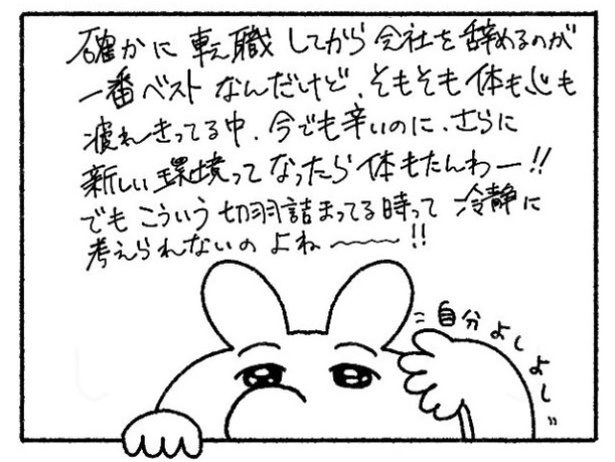 確かに転職してから会社を辞めるのが
一番ベストなんだけど、そもそも体も心も
疲れきってる中、今でも辛いのに、さらに
新しい環境ってなったら体もたんわー!!
でもこういう切羽詰まってる時って冷静に
考えられないのよね〜〜〜!!
自分よしよし